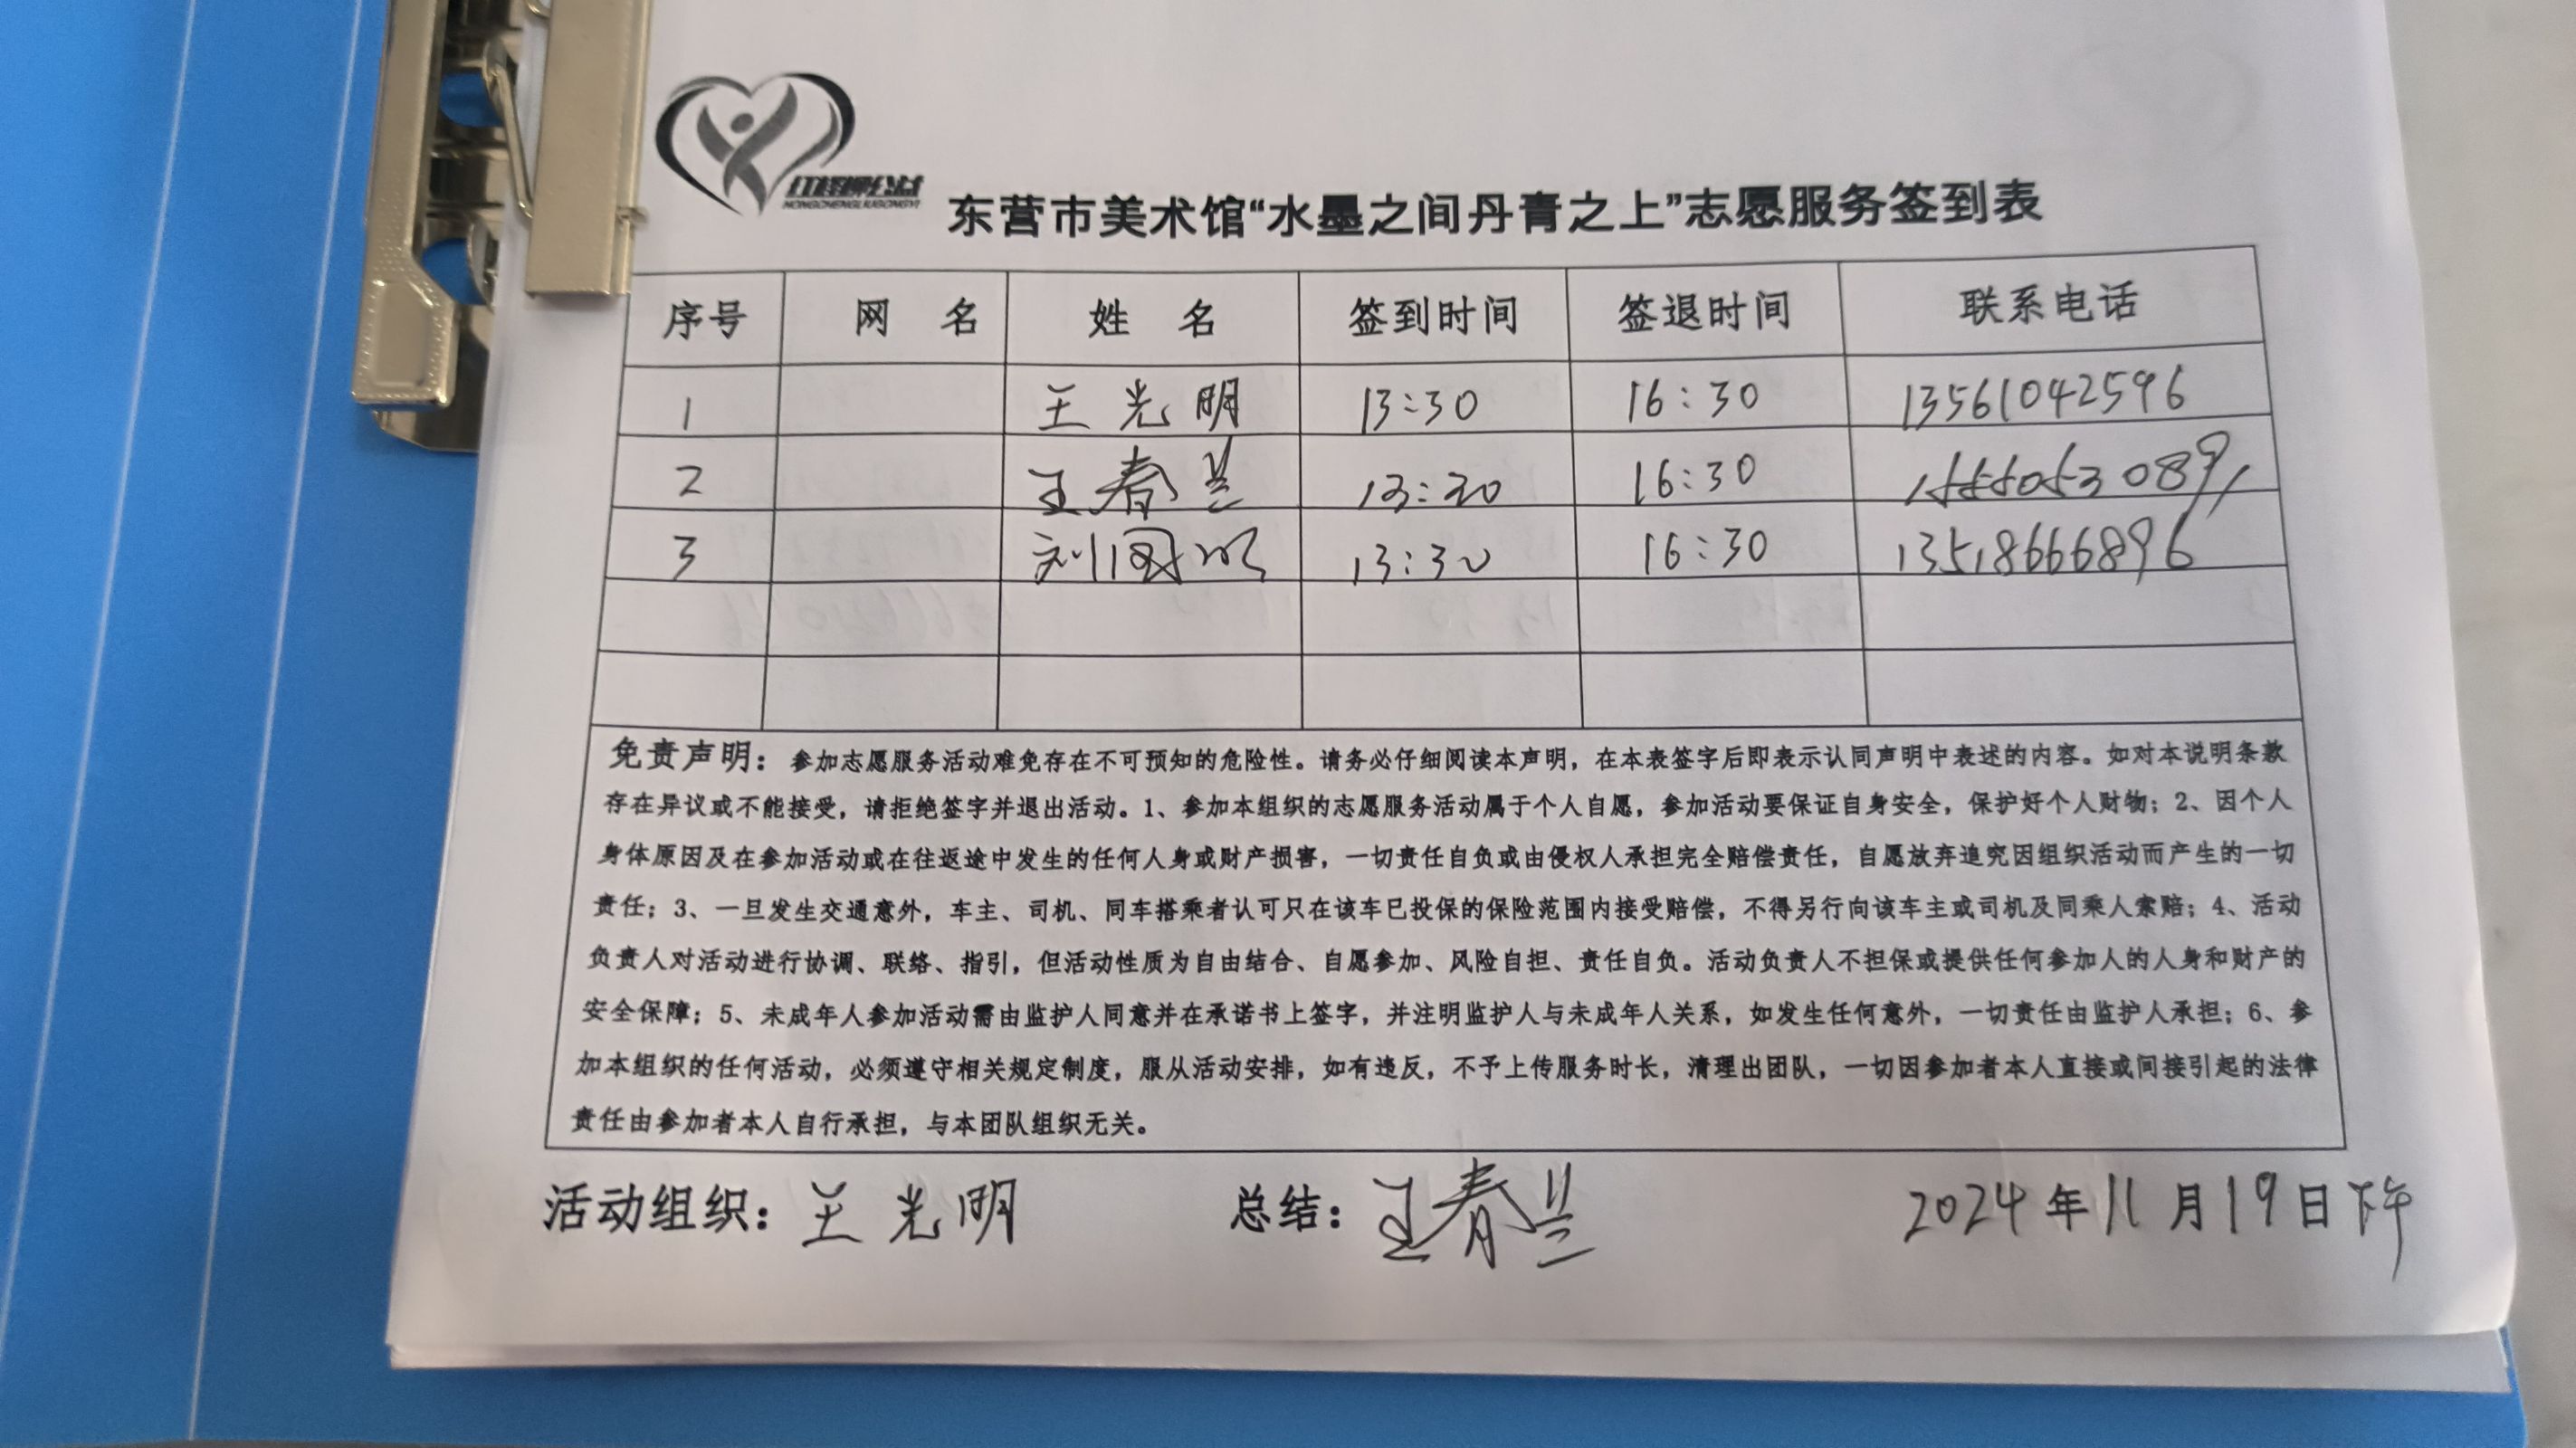 红柽柳公益
HONGCHENGLIUGONGYI
东营市美术馆“水墨之间丹青之上”志愿服务签到表
序号 网 名 姓 名 签到时间 签退时间 联系电话
1 王光明 13:30 16:30 13561042596
2 王春兰 13:30 16:30
3 13:30 16:30 13518666896
免责声明：参加志愿服务活动难免存在不可预知的危险性。请务必仔细阅读本声明，在本表签字后即表示认同声明中表述的内容。如对本说明条款
存在异议或不能接受，请拒绝签字并退出活动。1、参加本组织的志愿服务活动属于个人自愿，参加活动要保证自身安全，保护好个人财物；2、因个人
身体原因及在参加活动或在往返途中发生的任何人身或财产损害，一切责任自负或由侵权人承担完全赔偿责任，自愿放弃追究因组织活动而产生的一切
责任；3、一旦发生交通意外，车主、司机、同车搭乘者认可只在该车已投保的保险范围内接受赔偿，不得另行向该车主或司机及同乘人索赔；4、活动
负责人对活动进行协调、联络、指引，但活动性质为自由结合、自愿参加、风险自担、责任自负。活动负责人不担保或提供任何参加人的人身和财产的
安全保障；5、未成年人参加活动需由监护人同意并在承诺书上签字，并注明监护人与未成年人关系，如发生任何意外，一切责任由监护人承担；6、参
加本组织的任何活动，必须遵守相关规定制度，服从活动安排，如有违反，不予上传服务时长，清理出团队，一切因参加者本人直接或间接引起的法律
责任由参加者本人自行承担，与本团队组织无关。
活动组织：王光明 总结：王春兰 2024年11月19日下午